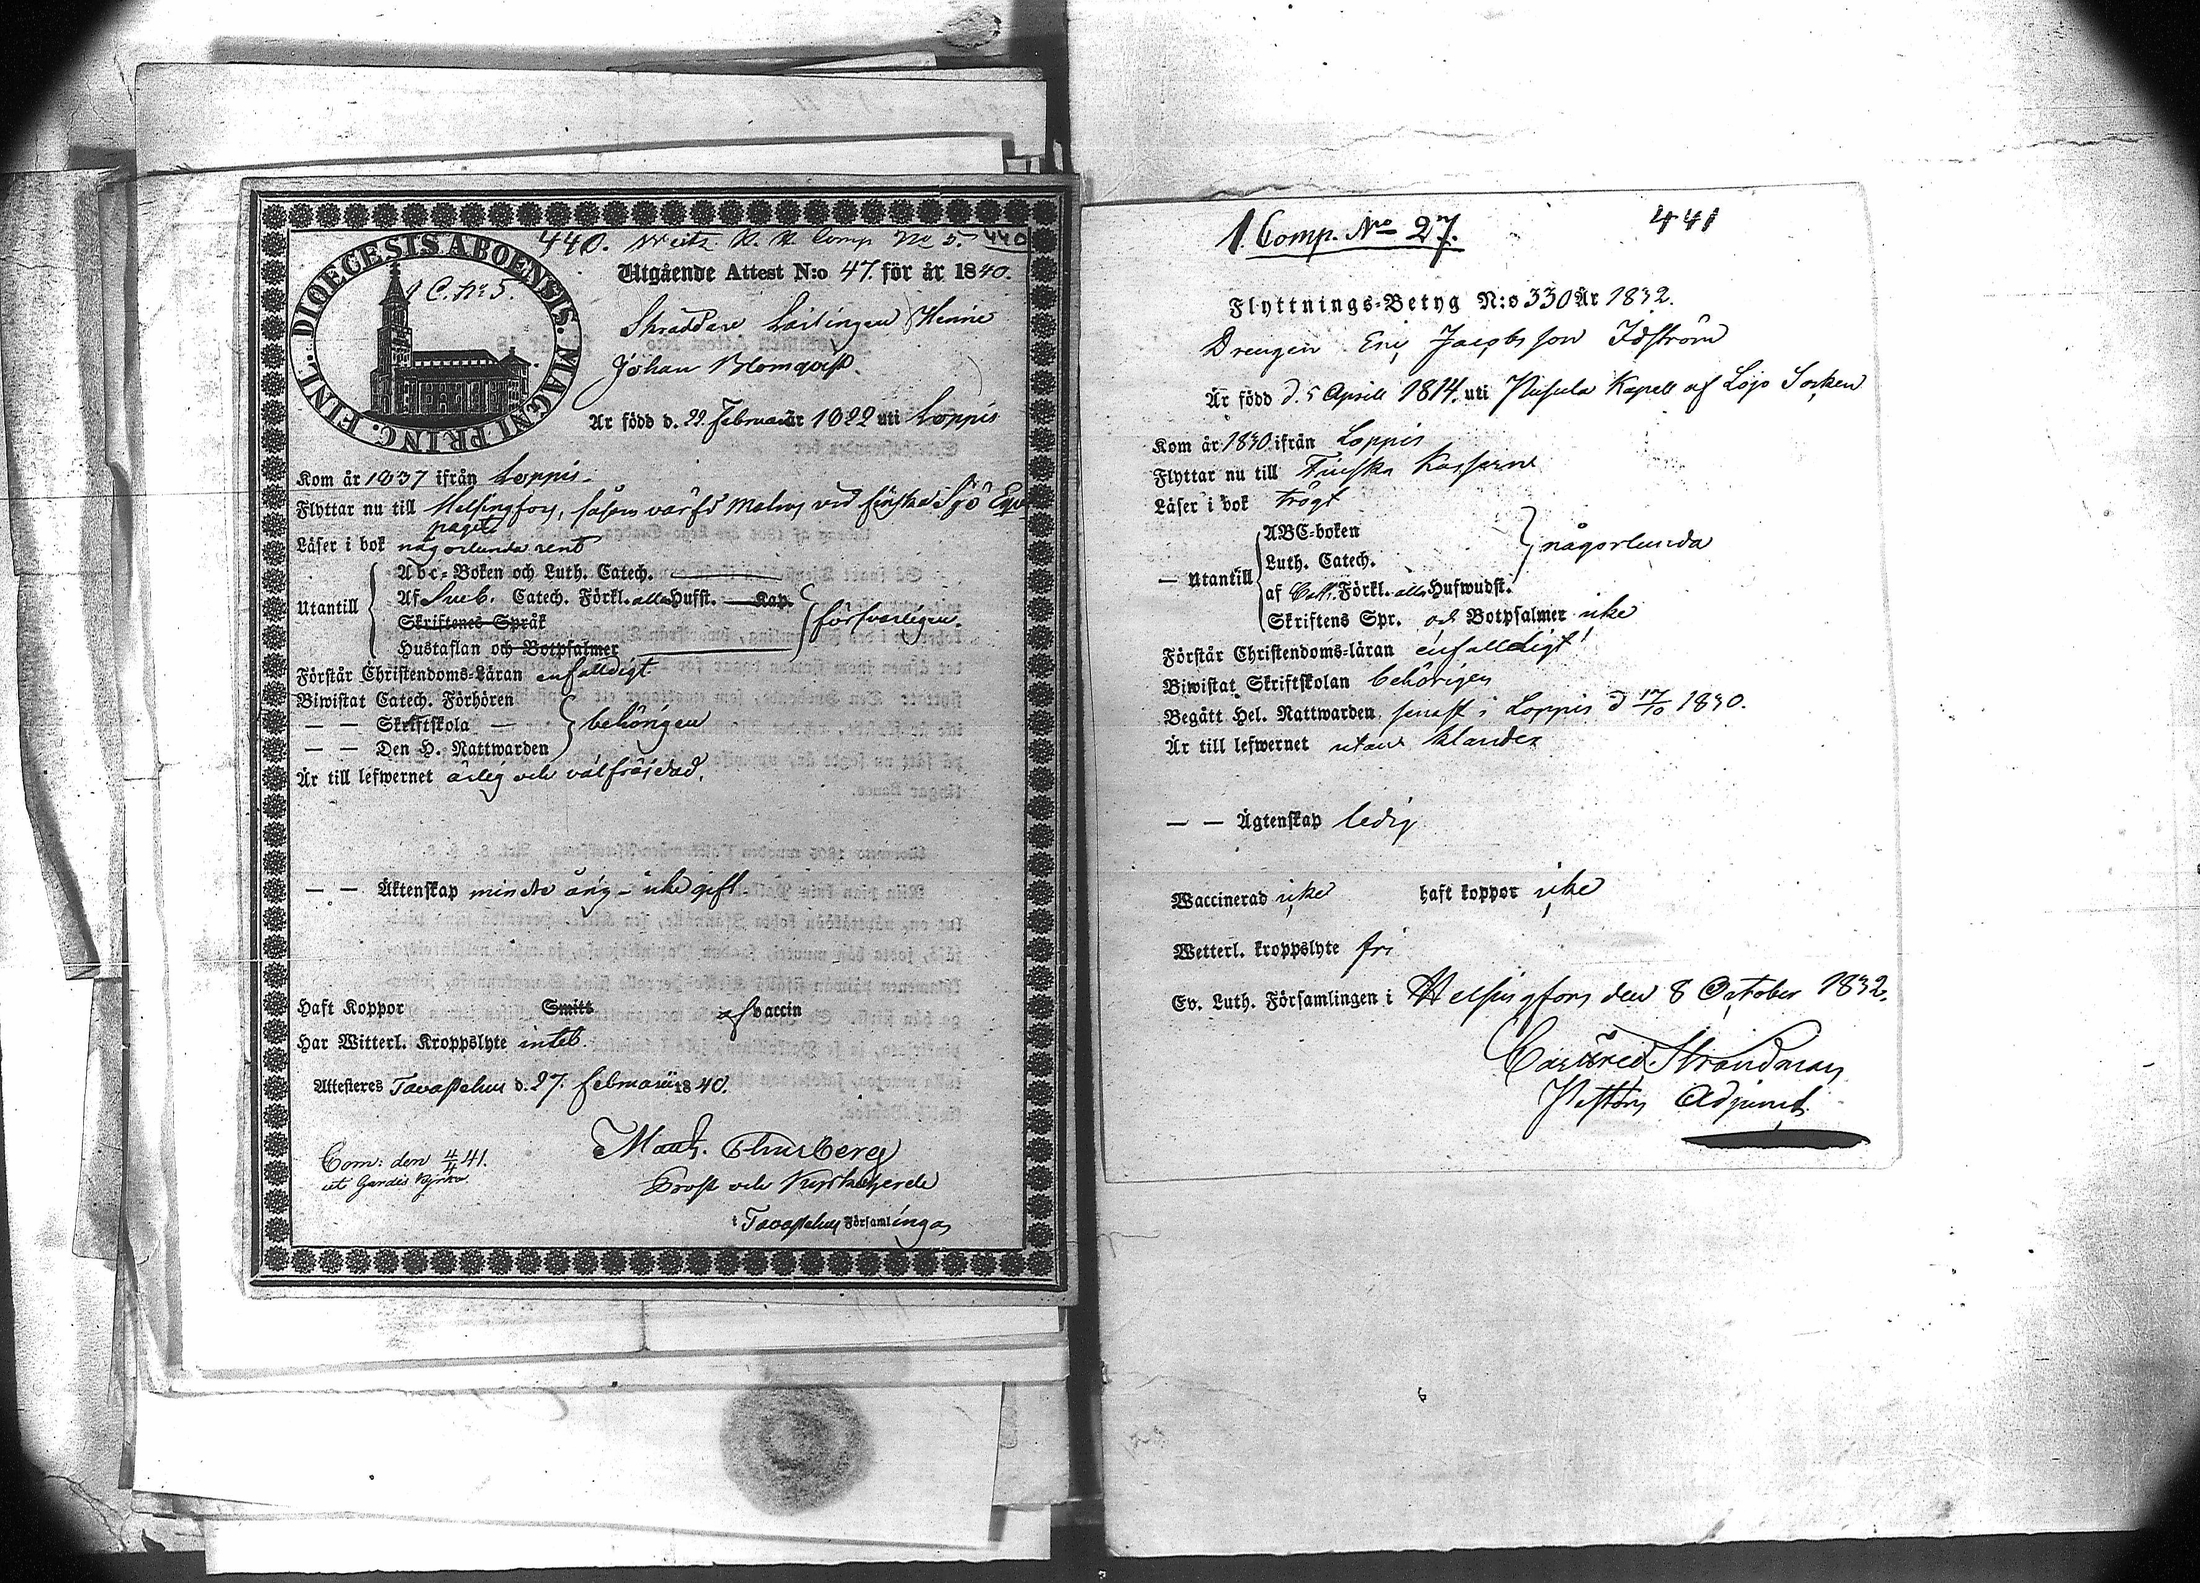 440. 440
DIOECESIS ABOENSIS. MAGNI PRINC. FINL.
1 C. No 5.
Utgående Attest N:o 47. för år 1840.
Skräddare Lärlingen Henric
Johan Blomqvist.
Är född d. 22 Februarii år 1822 uti Loppis
Kom år 1837 ifrån Loppis.
Flyttar nu till Helsingfors, såsom värfd Matros vid finska Sjö Equi
paget
Läser i bok någorlunda rent
Utantill
Abc-Boken och Luth. Catech.
Af Sveb. Catech. Förkl. alla Hufst. Kap.
Skriftenes Språk
Hustaflan och Botpsalmer
försvarligen.
Förstår Christendoms-Läran enfalldigt
Biwistat Catech. Förhören
— — Skriftskola —
— — Den H. Nattwarden
behörigen
Är till lefwernet ärlig och välfräjdad.
— — Äktenskap minderårig - icke gift
Haft Koppor Smitt af vaccin
Har Witterl. Kroppslyte intet.
Attesteras Tavastehus d. 27. februarii 1840.
Prost och Kyrkoherde
i Tavastehus Församlingar
Com: den 4/4 41.
ut Gardes Kyrka
1. Comp. No 27. 441
Flyttnings-Betyg N:o 330 År 1832.
Drengen Eric Jacobsson Idström
Är född d. 5 Aprill 1814. uti Pusula Kapell af Lojo Socken
Kom år 1830 ifrån Loppis
Flyttar nu till Finska Kasserne
Läser i bok trögt
— Utantill
ABC-boken
Luth. Catech.
af Cat. Förkl. alla Hufwudst.
någorlunda
Skriftens Spr. och Botpsalmer icke
Förstår Christendoms-läran enfalldigt
Biwistat Skriftskolan behörigen
Begått Hel. Nattwarden senast i Loppis d 17/10 1830.
Är till lefwernet utan klander
— — Ägtenskap ledig
Waccinerad icke haft koppor icke
Wetterl. kroppslyte fri
Ev. Luth. Församlingen i Helsingfors den 8 October 1832.
Strandman
Pastors Adjunct.